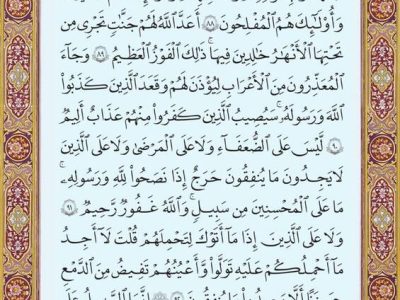 وَأُوْلَٰٓئِكَ هُمُ ٱلْمُفْلِحُونَ ٨٨ أَعَدَّ ٱللَّهُ لَهُمْ جَنَّٰتٍ تَجْرِى مِن
تَحْتِهَا ٱلْأَنْهَٰرُ خَٰلِدِينَ فِيهَا ۚ ذَٰلِكَ ٱلْفَوْزُ ٱلْعَظِيمُ ٨٩ وَجَآءَ
ٱلْمُعَذِّرُونَ مِنَ ٱلْأَعْرَابِ لِيُؤْذَنَ لَهُمْ وَقَعَدَ ٱلَّذِينَ كَذَبُوا۟
ٱللَّهَ وَرَسُولَهُۥ ۚ سَيُصِيبُ ٱلَّذِينَ كَفَرُوا۟ مِنْهُمْ عَذَابٌ أَلِيمٌ
٩٠ لَّيْسَ عَلَى ٱلضُّعَفَآءِ وَلَا عَلَى ٱلْمَرْضَىٰ وَلَا عَلَى ٱلَّذِينَ
لَا يَجِدُونَ مَا يُنفِقُونَ حَرَجٌ إِذَا نَصَحُوا۟ لِلَّهِ وَرَسُولِهِۦ ۚ
مَا عَلَى ٱلْمُحْسِنِينَ مِن سَبِيلٍ ۚ وَٱللَّهُ غَفُورٌ رَّحِيمٌ ٩١
وَلَا عَلَى ٱلَّذِينَ إِذَا مَآ أَتَوْكَ لِتَحْمِلَهُمْ قُلْتَ لَآ أَجِدُ
مَآ أَحْمِلُكُمْ عَلَيْهِ تَوَلَّوا۟ وَّأَعْيُنُهُمْ تَفِيضُ مِنَ ٱلدَّمْعِ
حَزَنًا أَلَّا يَجِدُوا۟ مَا يُنفِقُونَ ٩٢ إِنَّمَا ٱلسَّبِيلُ عَلَى